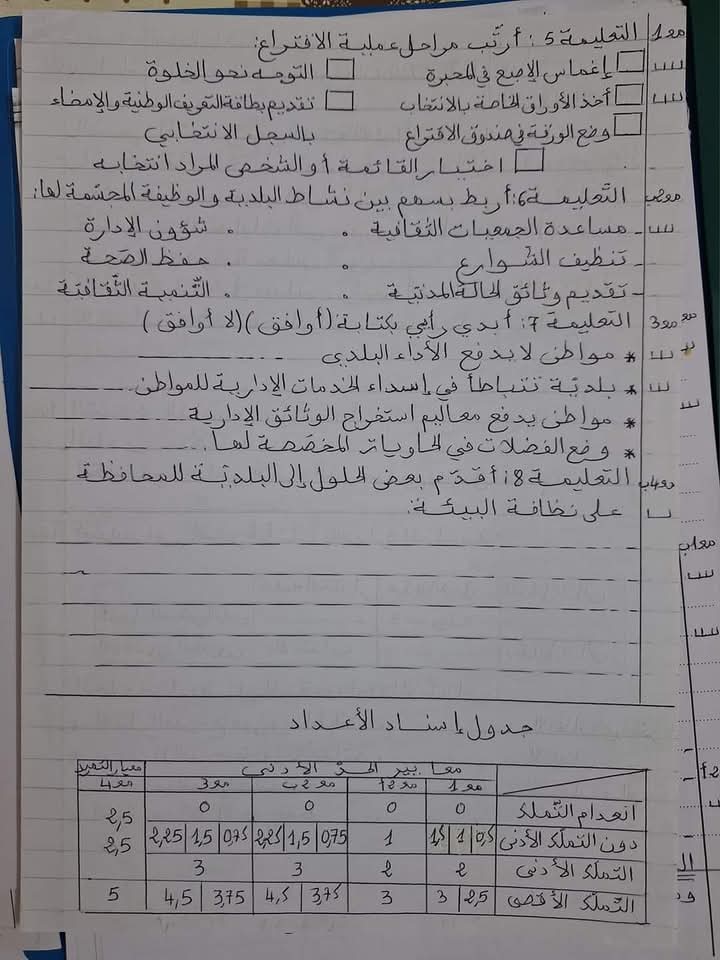 مع1 التعليمة 5: أرتّب مراحل عملية الاقتراع:
إغماس الإصبع في المحبرة □ التوجه نحو الخلوة □
أخذ الأوراق الخاصة بالانتخاب □ تقديم بطاقة التعريف الوطنية والإمضاء □
وضع الورقة في صندوق الاقتراع □ بالسجل الانتخابي
اختيار القائمة أو الشخص المراد انتخابه □
مع2ب التّعليمة 6: أربط بسهم بين نشاط البلدية والوظيفة المجسّمة لها:
- مساعدة الجمعيات الثقافية . . شؤون الإدارة
- تنظيف الشوارع . . حفظ الصّحة
- تقديم وثائق الحالة المدنية . . التّنمية الثّقافيّة
مع3 التعليمة 7: أبدي رأيي بكتابة (أوافق) (لا أوافق)
* مواطن لا يدفع الأداء البلدي
* بلديّة تتباطأ في إسداء الخدمات الإدارية للمواطن
* مواطن يدفع معاليم استخراج الوثائق الإدارية
* وضع الفضلات في الحاويات المخصّصة لها.
مع4 التعليمة 8: أقدّم بعض الحلول إلى البلديّة للمحافظة
على نظافة البيئة:
جدول إسناد الأعداد
معايير الحدّ الأدنى معيار التميز
مع 1 مع 2أ مع 2ب مع 3 مع 4
انعدام التّملك 0 0 0 0
2,5
دون التملّك الأدنى 0,5 1 1,5 1 0,75 1,5 2,25 0,75 1,5 2,25 2,5
التملّك الأدنى 2 2 3 3
التّملّك الأقصى 2,5 3 3 3,75 4,5 3,75 4,5 5